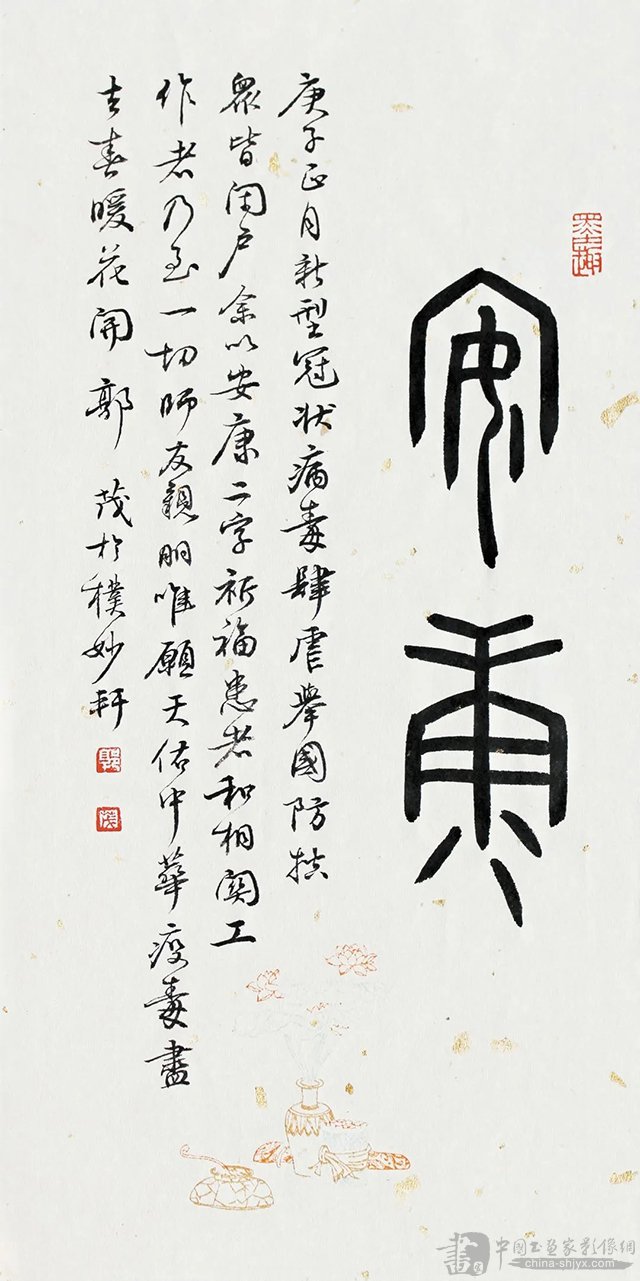 安康
庚子正月新型冠状病毒肆虐舉國防控
眾皆閉户余以安康二字祈福患者和相關工
作者乃至一切師友親朋唯願天佑中華疫毒盡
去春暖花開 郭茂於樸妙軒
郭
茂
書
中國书画家影像網
china-shjyx.com